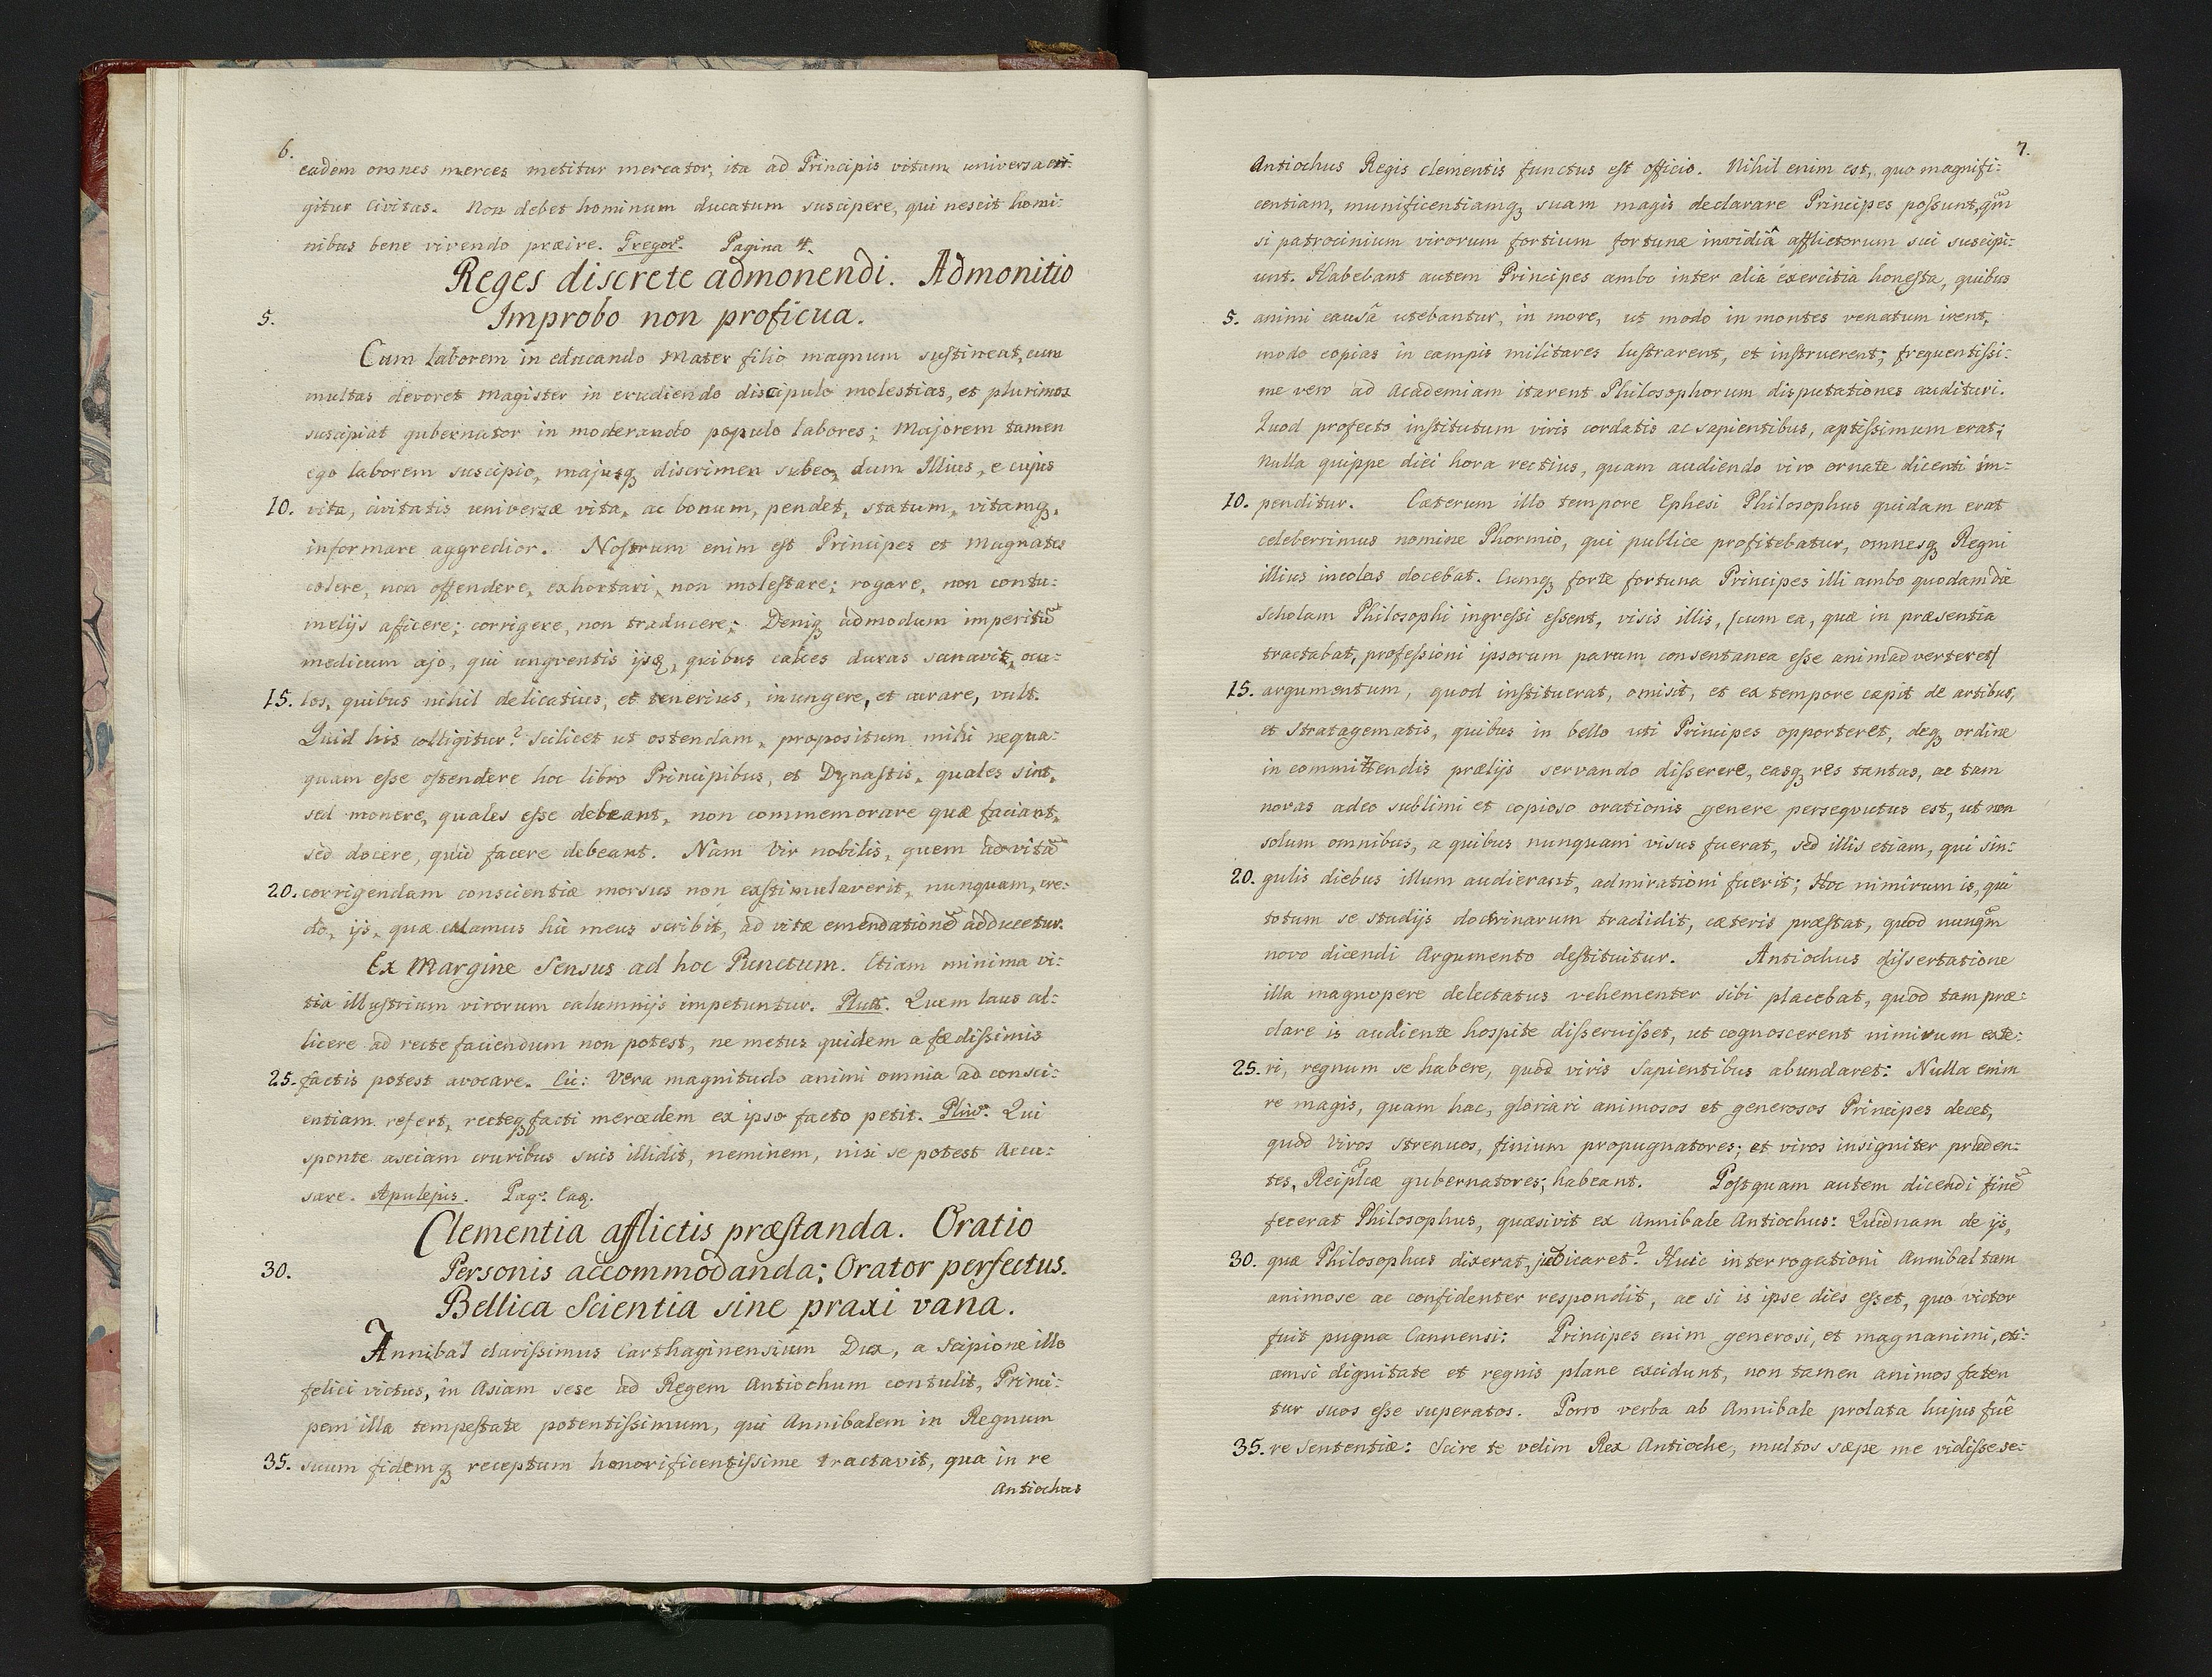 6.
eadem omnes merces metitur mercator, ita ad Principis vitam universa eri:
gitur Civitas. Non debet hominum ducatum suscipere, qui nescit homi:
nibus bene vivendo præire. Gregor. Pagina 4.
Reges discrete admonendi. Admonitio
5. Improbo non proficua.
Cum laborem in educando Mater filio magnum sustineat, cum
multas devoret Magister in erudiendo discipulo molestias, et plurimos
suscipiat gubernator in moderando populo labores; Majorem tamen
ego laborem suscipio, majusq3 discrimen subeo, dum Illius, e cujus
10. vita, civitatis universæ vita, ac bonum, pendet, statum, vitamq3,
informare aggredior. Nostrum enim est Principes et Magnates
colere, non offendere, exhortari, non molestare; rogare, non contu:
melijs afficere; corrigere, non traducere; Deniq3 admodum imperitũ
medicum ajo, qui ungventis ijsdẽ, quibus calces duras sanavit, ocu:
15. los, quibus nihil delicatius, et tenerius, inungere, et curare, vult.
Quid his colligitur? Scilicet ut ostendam, propositum mihi nequa:
quam esse ostendere hoc libro Principibus, et Dynastis, quales sint,
sed monere, quales esse debeant, non commemorare quæ faciant,
sed docere, quid facere debeant. Nam Vir nobilis, quem ad vitã
20. corrigendam conscientiæ morsus non exstimulaverit, nunquam, cre:
do, ijs, quæ calamus hic meus scribit, ad vitæ emendationẽ adducetur.
Ex Margine Sensus ad hoc Punctum. Etiam minima vi:
tia illustrium virorum calumnijs impetuntur. Plut. Quem laus al:
licere ad recte faciendum non potest, ne metus quidem a fœdissimis
25. factis potest avocare. Cic: Vera magnitudo animi omnia ad consci:
entiam refert, recteq3 facti mercedem ex ipso facto petit. Plin. Qui
sponte asciam cruribus suis illidit, neminem, nisi se potest Accu:
sare. Apulejus. Pag. Eaq.
Clementia afflictis præstanda. Oratio
30. Personis accommodanda; Orator perfectus.
Bellica Scientia sine praxi vana.
Annibal clarissimus Carthaginensium Dux, a Scipione illo
felici victus, in Asiam sese ad Regem Antiochum contulit, Princi:
pem illa tempestate potentissimum, qui Annibalem in Regnum
35. suum fidemq3 receptum honorificentissime tractavit, qua in re
Antiochus
7.
Antiochus Regis clementis functus est officio. Nihil enim est, quo magnifi:
centiam, munificentiamq3 suam magis declarare Principes possunt, qũm
si patrocinium virorum fortium fortunæ invidiâ afflictorum sui suscipi:
unt. Habebant autem Principes ambo inter alia exercitia honesta, quibus
5. animi causâ utebantur, in more, ut modo in montes venatum irent,
modo copias in campis militares lustrarent, et instruerent; frequentissi:
me vero ad Academiam itarent Philosophorum disputationes audituri.
Quod profecto institutum viris cordatis ac sapientibus, aptissimum erat;
Nulla quippe diei hora rectius, quam audiendo viro ornate dicenti im:
10. penditur. Cæterum illo tempore Ephesi Philosophus quidam erat
celeberrimus nomine Phormio, qui publice profitebatur, omnesq3 Regni
illius incolas docebat. Cumq3 forte fortuna Principes illi ambo quodam die
Scholam Philosophi ingressi essent, visis illis, /cum ea, quæ in præsentia
tractabat, professioni ipsorum parum consentanea esse animadverteret/
15. argumentum, quod instituerat, omisit, et ex tempore cæpit de artibus,
et Stratagematis, quibus in bello uti Principes opporteret, deq3 ordine
in committendis prælijs servando disserere, easq3 res tantas, ac tam
novas adeo sublimi et copioso orationis genere persequutus est, ut non
solum omnibus, a quibus nunquam visus fuerat, sed illis etiam, qui sin:
20. gulis diebus illum audierant, admirationi fuerit; Hoc nimirum is, qui
totum se studijs doctrinarum tradidit, cæteris præstat, quod nunqm̃
novo dicendi Argumento destituitur. Antiochus dissertatione
illa magnopere delectatus vehementer sibi placebat, quod tam præ:
clare is audiente hospite disseruisset, ut cognoscerent nimirum exte:
25. ri, regnum se habere, quod viris Sapientibus abundaret: Nulla enim
re magis, quam hac, gloriari animosos et generosos Principes decet,
quod Viros strenuos, finium propugnatores; et viros insigniter pruden:
tes, Reip̃licæ gubernatores; habeant. Postquam autem dicendi finẽ
fecerat Philosophus, quæsivit ex Annibale Antiochus: Quidnam de ijs,
30. quæ Philosophus dixerat, judicaret? Huic interrogationi Annibal tam
animose ac confidenter respondit, ac si is ipse dies esset, quo victor
fuit pugna Cannensi: Principes enim generosi, et magnanimi, eti:
amsi dignitate et regnis plane excidunt, non tamen animos faten
tur suos esse superatos. Porro verba ab Annibale prolata hujus fuê
35. re Sententiæ: Scire te velim Rex Antioche, multos sæpe me vidisse se: